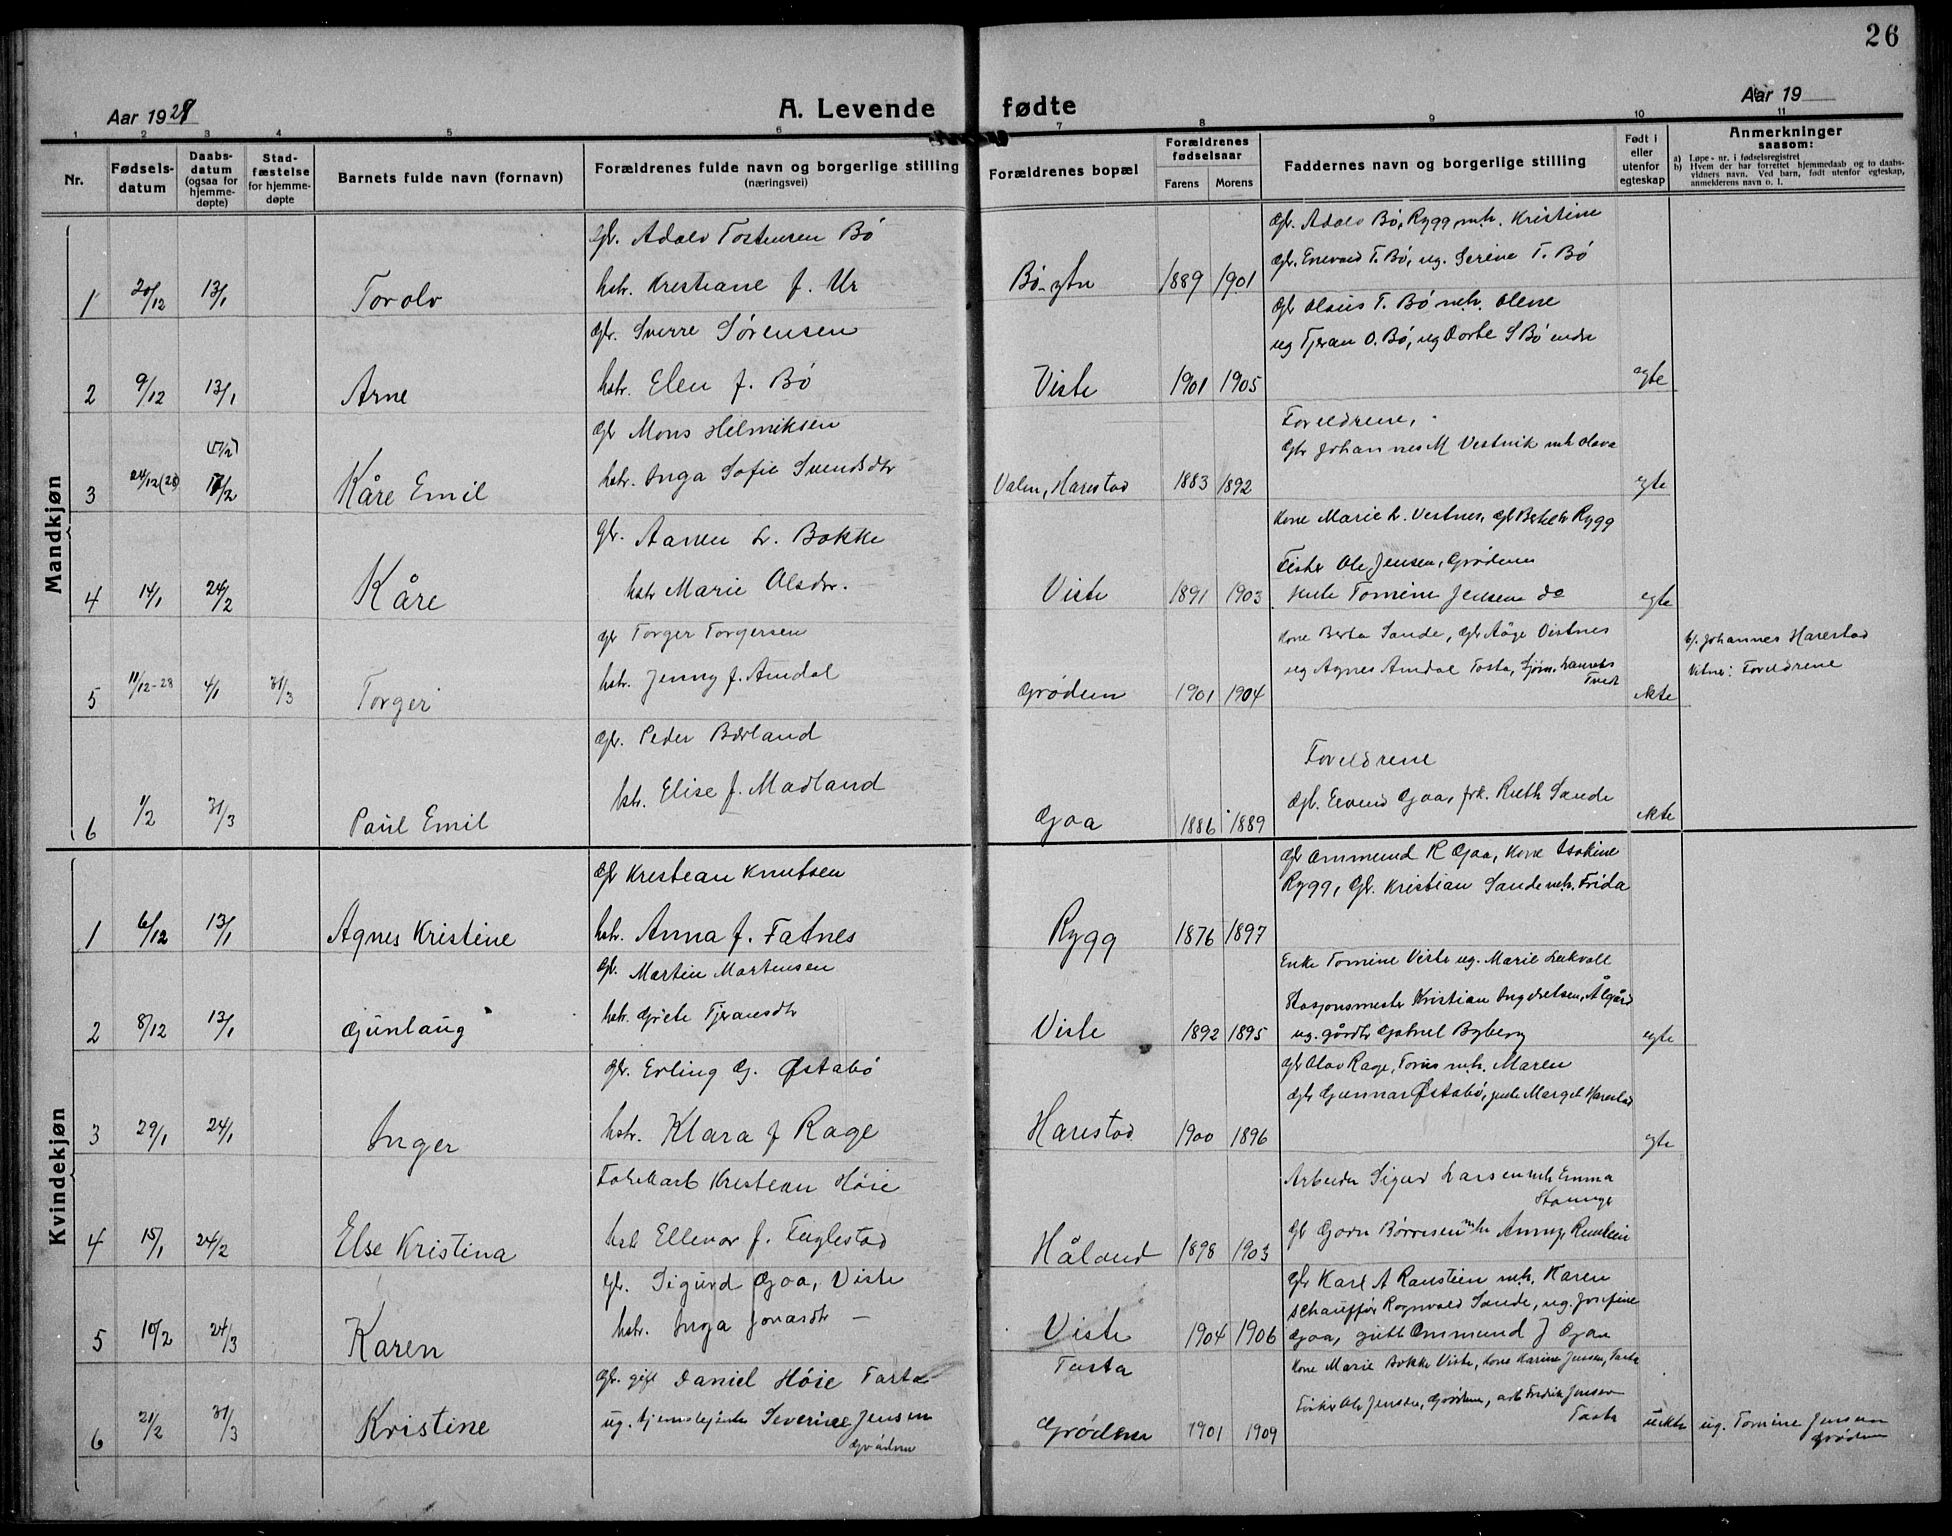 26
Aar 1929
A. Levende fødte
Aar 19
1 2 3 4 5 6 7 8 9 10 11
Nr.
Fødsels-datum
Daabs-datum (ogsaa for hjemme-døpte)
Stad-fæstelse for hjemme-døpte
Barnets fulde navn (fornavn)
Forældrenes fulde navn og borgerlige stilling (næringsvei)
Forældrenes bopæl
Forældrenes fødselsaar
Farens Morens
Faddernes navn og borgerlige stilling
Født i eller utenfor egteskap
Anmerkninger saasom:
a) Løpe-nr. i fødselsregistret
b) Hvem der har forrettet hjemmedaab og to daabs-vidners navn. Ved barn, født utenfor egteskap, anmelderens navn o. l.
Mandkjøn
gbr. Adolv Tostensen Bø gbr. Adolv Bø, Rygg m.h. Kristine
gbr. Enevald T. Bø, ug. Serine T. Bø
1 20/12 13/1 Torolv hstr. Kristiane f. Ur Bø - ytre 1889 1901
gbr. Olaus T. Bø m.h. Olene
gbr. Sverre Sørensen ug Tjeran O. Bø, ug Dorte S Bø indre
2 9/12 13/1 Arne hstr. Elen f. Bø Viste 1901 1905 egte
gbr Mons Helmiksen Foreldrene,
(17/2) Gbr Johannes M Vestvik m.h. Olava
3 24/12 (28) 17/2 Kåre Emil hstr. Inga Sofie Svendsdtr Valen, Harestad 1883 1892 egte
gbr. Aanen L. Bokke Kone Marie L. Vestnes, gbr Bertel Rygg
Fisker Ole Jensen, Grødem
4 14/1 24/2 Kåre hstr Marie Olsdtr. Viste 1891 1903 Jente Tomine Jensen do egte
gbr Torger Torgersen Kone Berta Sande, gbr Åge Vistnes b/. Johannes Harestad
hstr. Jenny f. Amdal ug Agnes Amdal Tasta, Sjøm. Laurits Tvedt Vitner: Foreldrene
5 11/12-28 4/1 31/3 Torger Grødem 1901 1904 ekte
gbr. Peder Bærland Foreldrene
hstr. Elise f. Madland gbr. Eivind Goa, frk. Ruth Sande
6 1/2 31/3 Paul Emil Goa 1886 1889 ekte
Kvindekjøn
gbr Kristian Knutsen gbr Ommund R Goa, Kone Isakine
Rygg, Gbr. Kristian Sande m.h. Frida
1 6/12 13/1 Agnes Kristine hstr. Anna f. Fatnes Rygg 1876 1897
gbr. Martin Martinsen Enke Tomine Viste ug. Marie Leikvoll
Stasjonsmester Kristian Ingebretsen, Ålgård
2 8/12 13/1 Gunlaug hstr. Grete Tjeransdtr Viste 1892 1895 ug. gårdbr Gabriel Byberg egte
gbr. Erling G. Østabø gbr Olav Rage, m.h. Maren
gbr Gunnar Østabø, jente Margit Harestad
3 29/1 24/1 Inger hstr. Klara f Rage Harestad 1900 1896 egte
Fabrikarb Kristian Høie Arbeider Sigurd Larsen m.h. Emma
Stavanger
4 15/1 24/2 Else Kristina hstr Ellenor f. Fuglestad Håland 1898 1903 gbr Børresen m.h. Anny,
gbr. Sigurd Goa, Viste gbr Karl A Randeen m.h. Karen
schauffør Ragnvald Sande, ug. Josefine
5 10/2 24/3 Karen hstr. Inga Jonasdtr Viste 1904 1906 Goa, gutt Ommund J Goa
Gbr. gift Daniel Høie Tasta Tasta Kone Marie Bokke Viste, Kone Karine Jensen, Tasta
Fisker Ole Jensen, Grødem, arb Fredrik Jensen Tasta
6 21/2 31/3 Kristine ug. Severine Jensen Grødem Grødem 1901 1909 uekte ug. Tomine Jensen Grødem